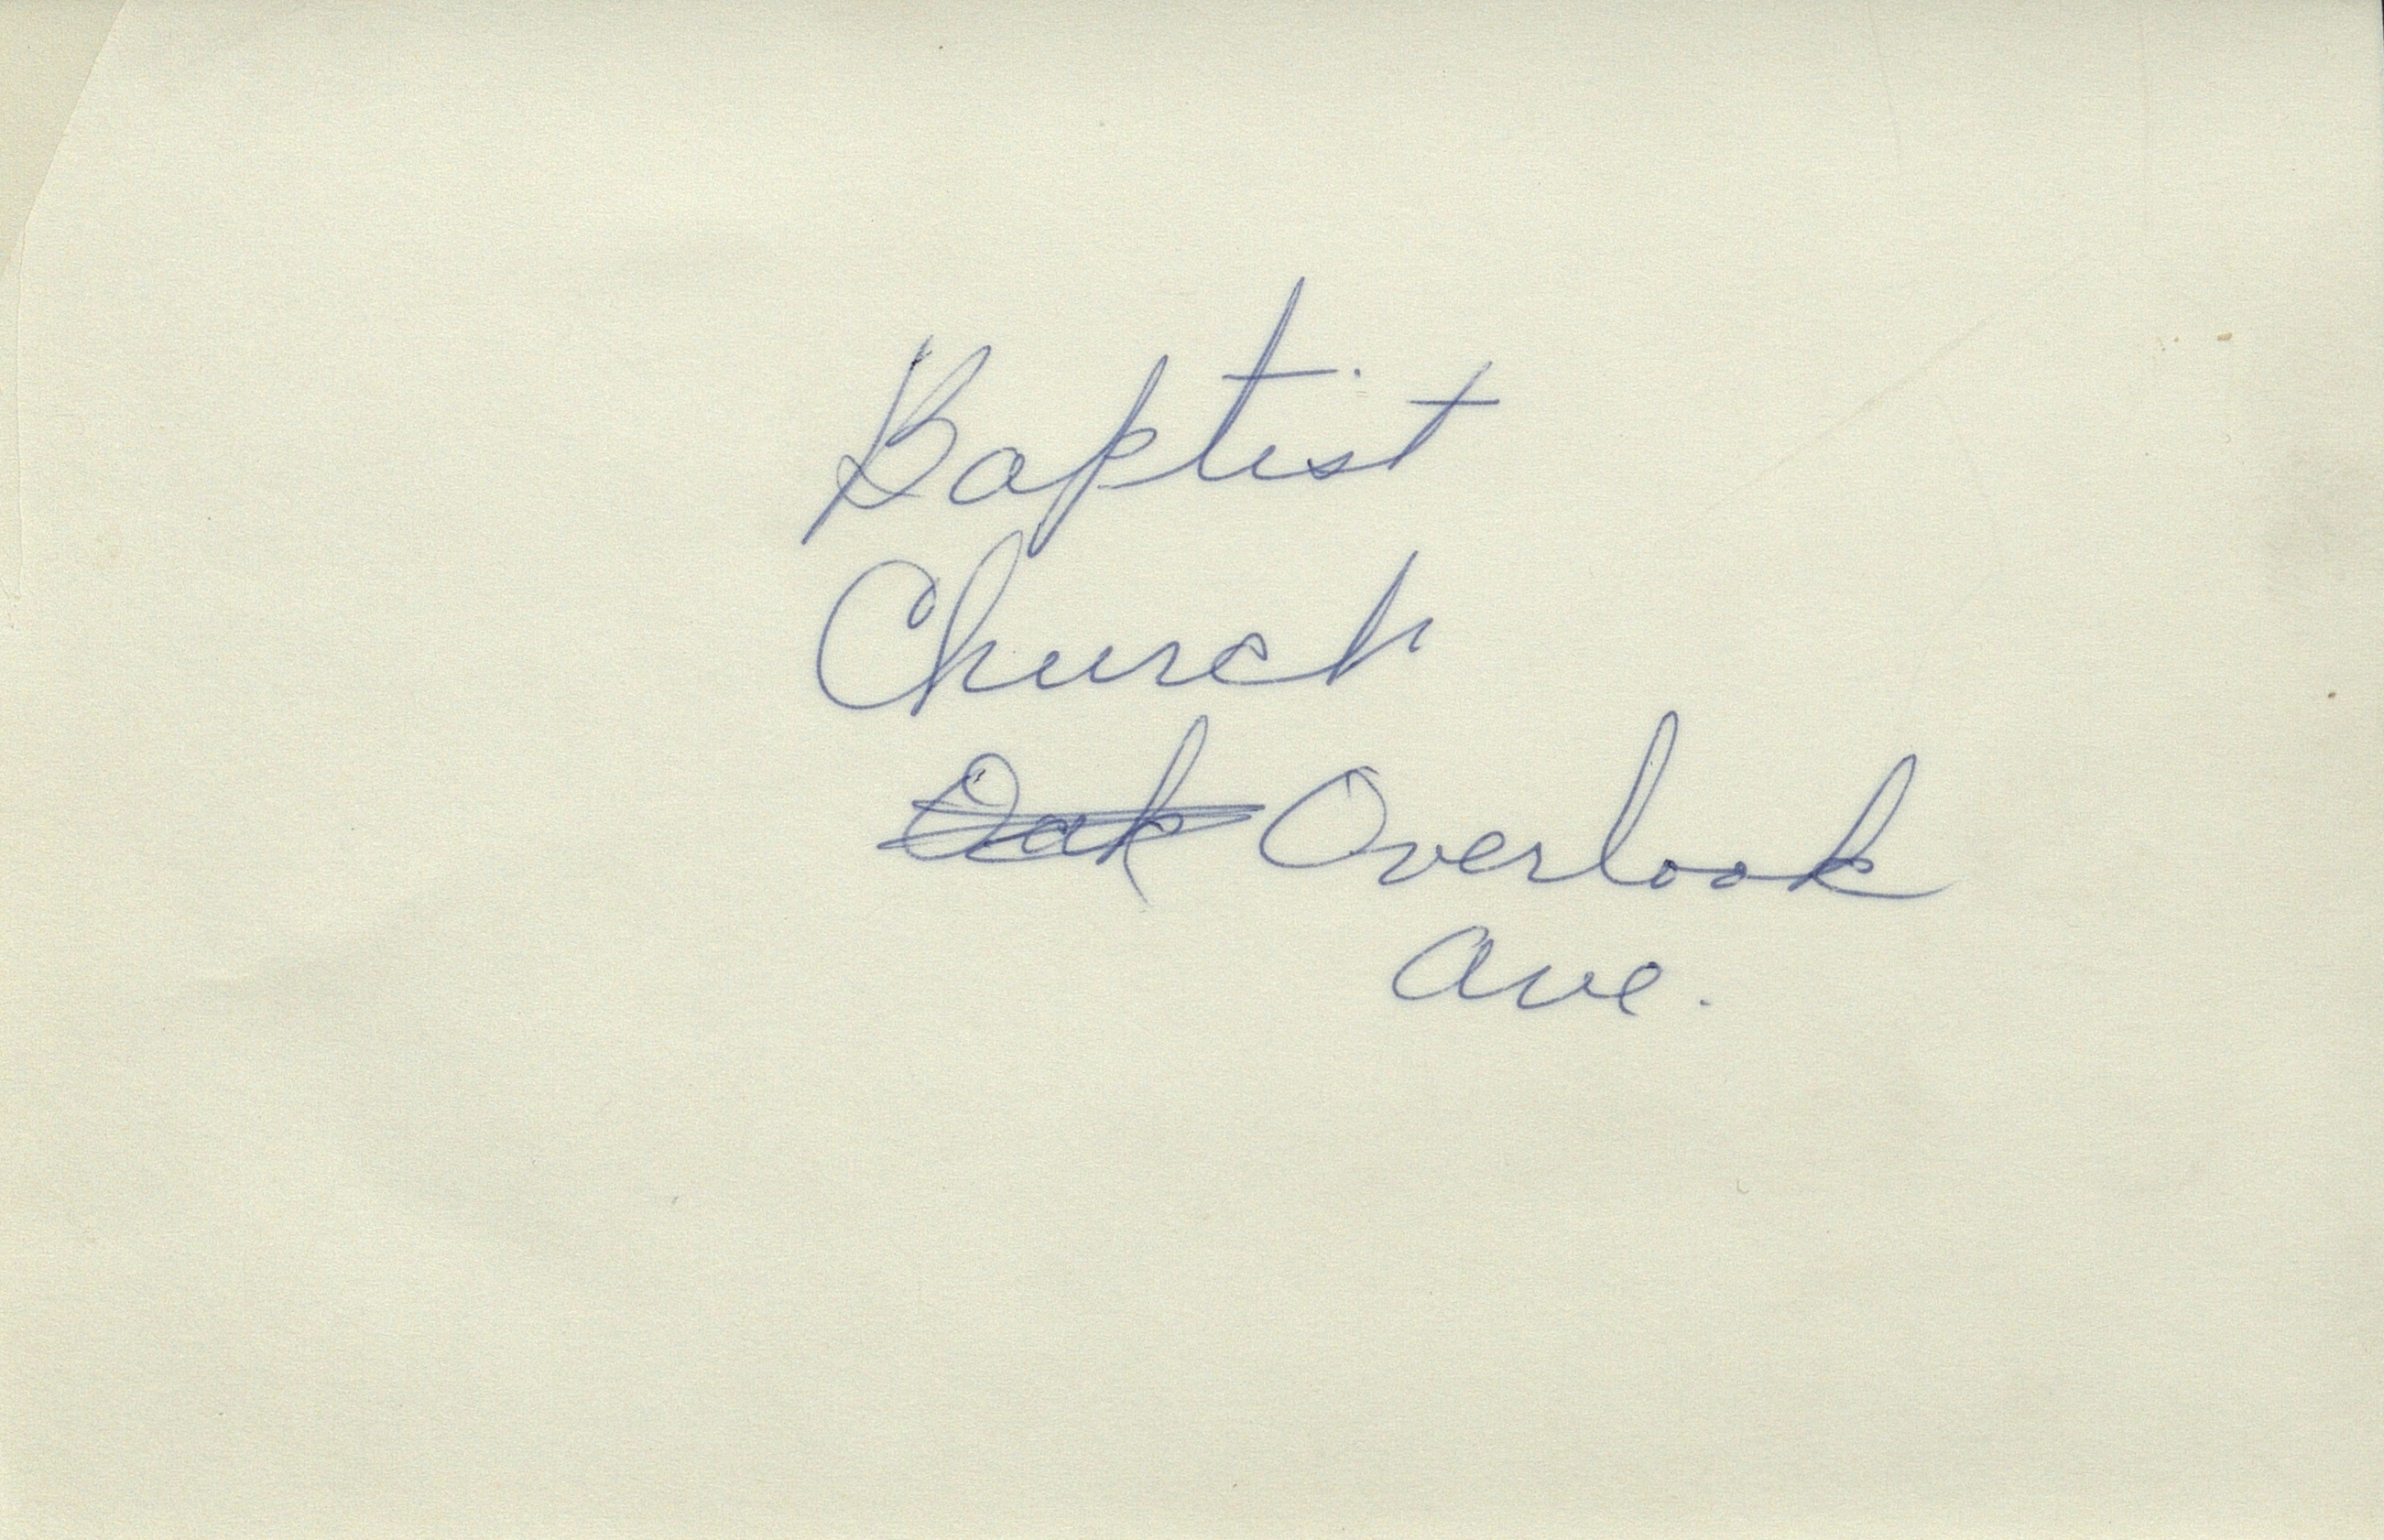 Baptist
Church
Oak Overlook
Ave.